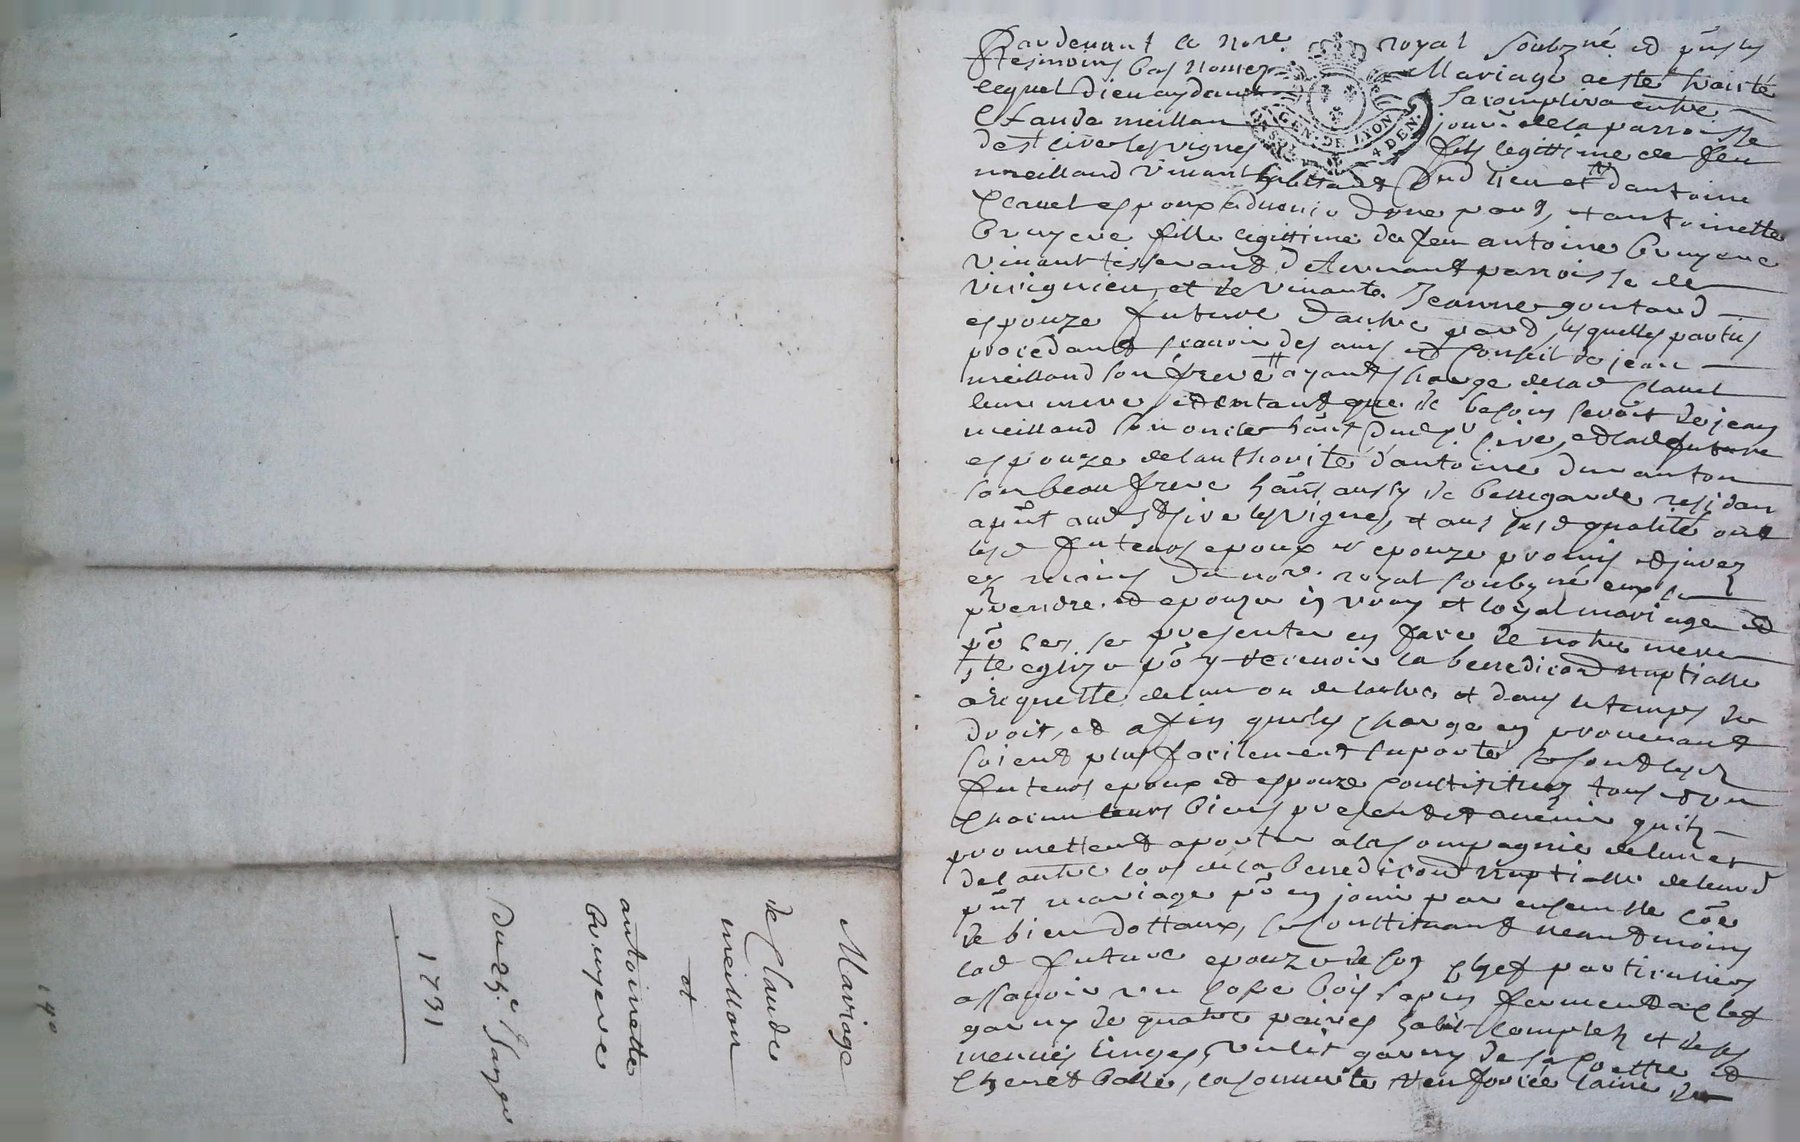 Pardevant le nore royal soubzné et pñts
tesmoins bas nomez Mariage a esté traité
lequel Dieu aydant s'acomplira entre
Claude meillan jour. de la parroisse
de st cire les vignes fils legittime de feu
meilland vivant habitant dud lieu et d'antoine
Clauel espoux aduenir d'une part, et antoinette
bruyere fille legittime de feu antoine bruyere
vivant tisserand parroisse de
virignieu, et de vivante Jeanne goutard
espouze future d'autre part, lesquelles parties
procedant scavoir des avis et conseil de jean
meilland son frere ayant charge de lad Clauel
leur mere, et entant que de besoin seroit de jean
meilland son oncle hant dud st cire, et lad future
espouze de l'authorité d'antoine duranton
son beau frere hant aussy de bellegarde residan
apñt aud st sire les vignes, et aus sus d qualités ont
lesd futeurs epoux et epouze promis et jurez
es mains du nore royal soubzné eux
prendre et epouzer en vray et loyal mariage et
po ce se presenter en face de notre mere
ste eglize po y recevoir la benediction nuptialle
a requette de l'un ou de l'autre et dans le temps de
droit, et afin que les charge en provenant
soient plus facilement suporté se sont lesd
futeurs epoux et espouze constitué tous et un
chacun leurs biens present et avenir quils
promettent aporter a la compagnie de l'un et
de l'autre lors de la benediction nuptialle de leurd
pñt mariage po en jouir par ensemble coe
de bien dottaux, se constituant neantmoins
lad future epouze de son chef particuliers
assavoir un cofre bois sapin fermant a clef
garny de quatre paires habit complet et de ses
menues linges, un lit garny de sa coettre et
chevet balle, la couverte laine de
Mariage
de Claude
meillon
et
antoinette
bruyere
Du 25e Janver
1731
GEN. DE LYON
4 DEN.